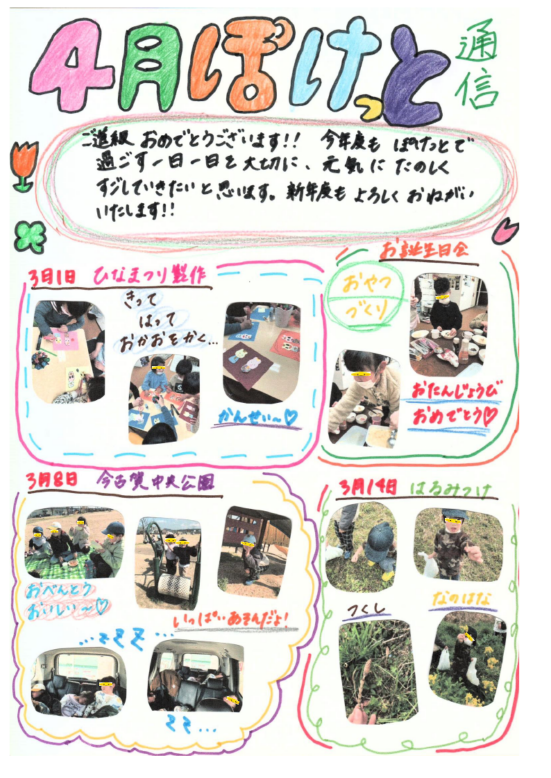 4月ぽけっと通信
ご進級 おめでとうございます!! 今年度も ぽけっとで
過ごす一日一日を大切に、元気に たのしく
すごしていきたいと思います。新年度も よろしく おねがい
いたします!!
3月1日 ひなまつり製作
きって
はって
おかおをかく…
かんせい〜♡
お誕生日会
おやつ
づくり
おたんじょうび
おめでとう♡
3月8日 今古賀中央公園
おべんとう
おいしい〜♡
いっぱいあそんだよ!
...zzz...
zz...
3月14日 はるみつけ
つくし
なのはな